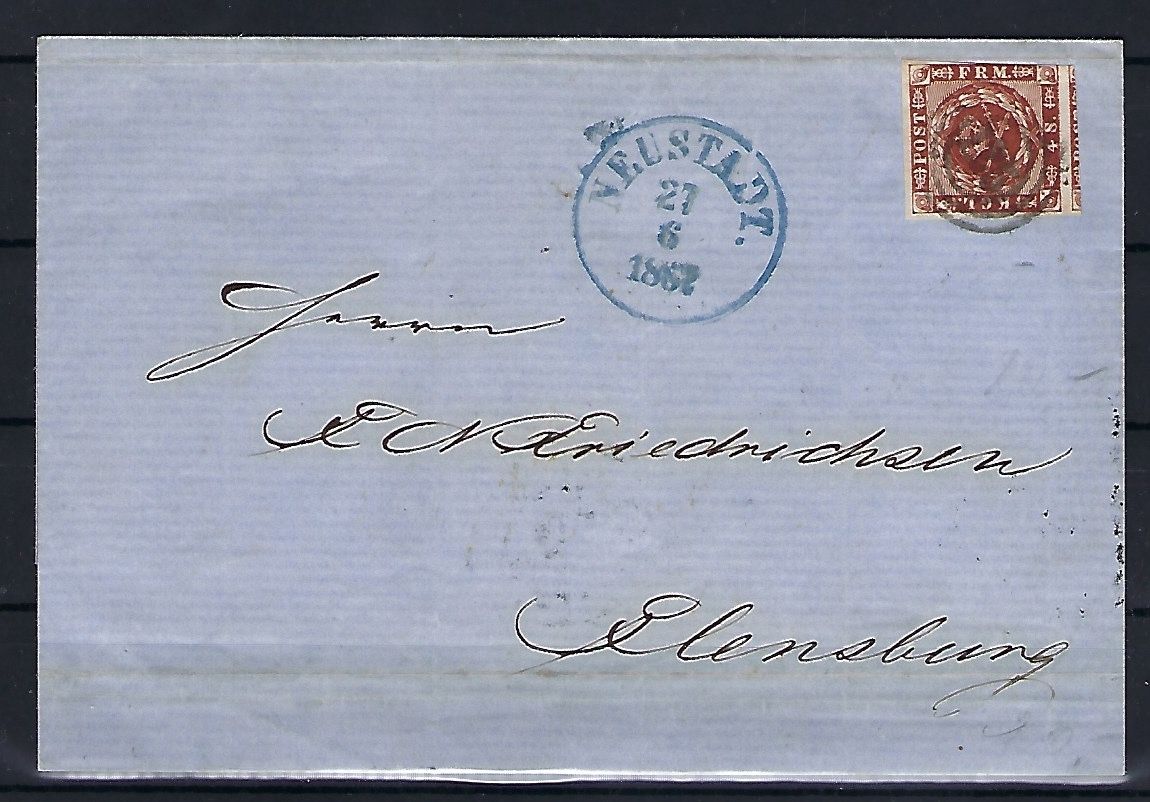 FRM.
POST
4 S.
K G L.
NEUSTADT.
27
6
1862
Herrn
P N Friedrichsen
Flensburg